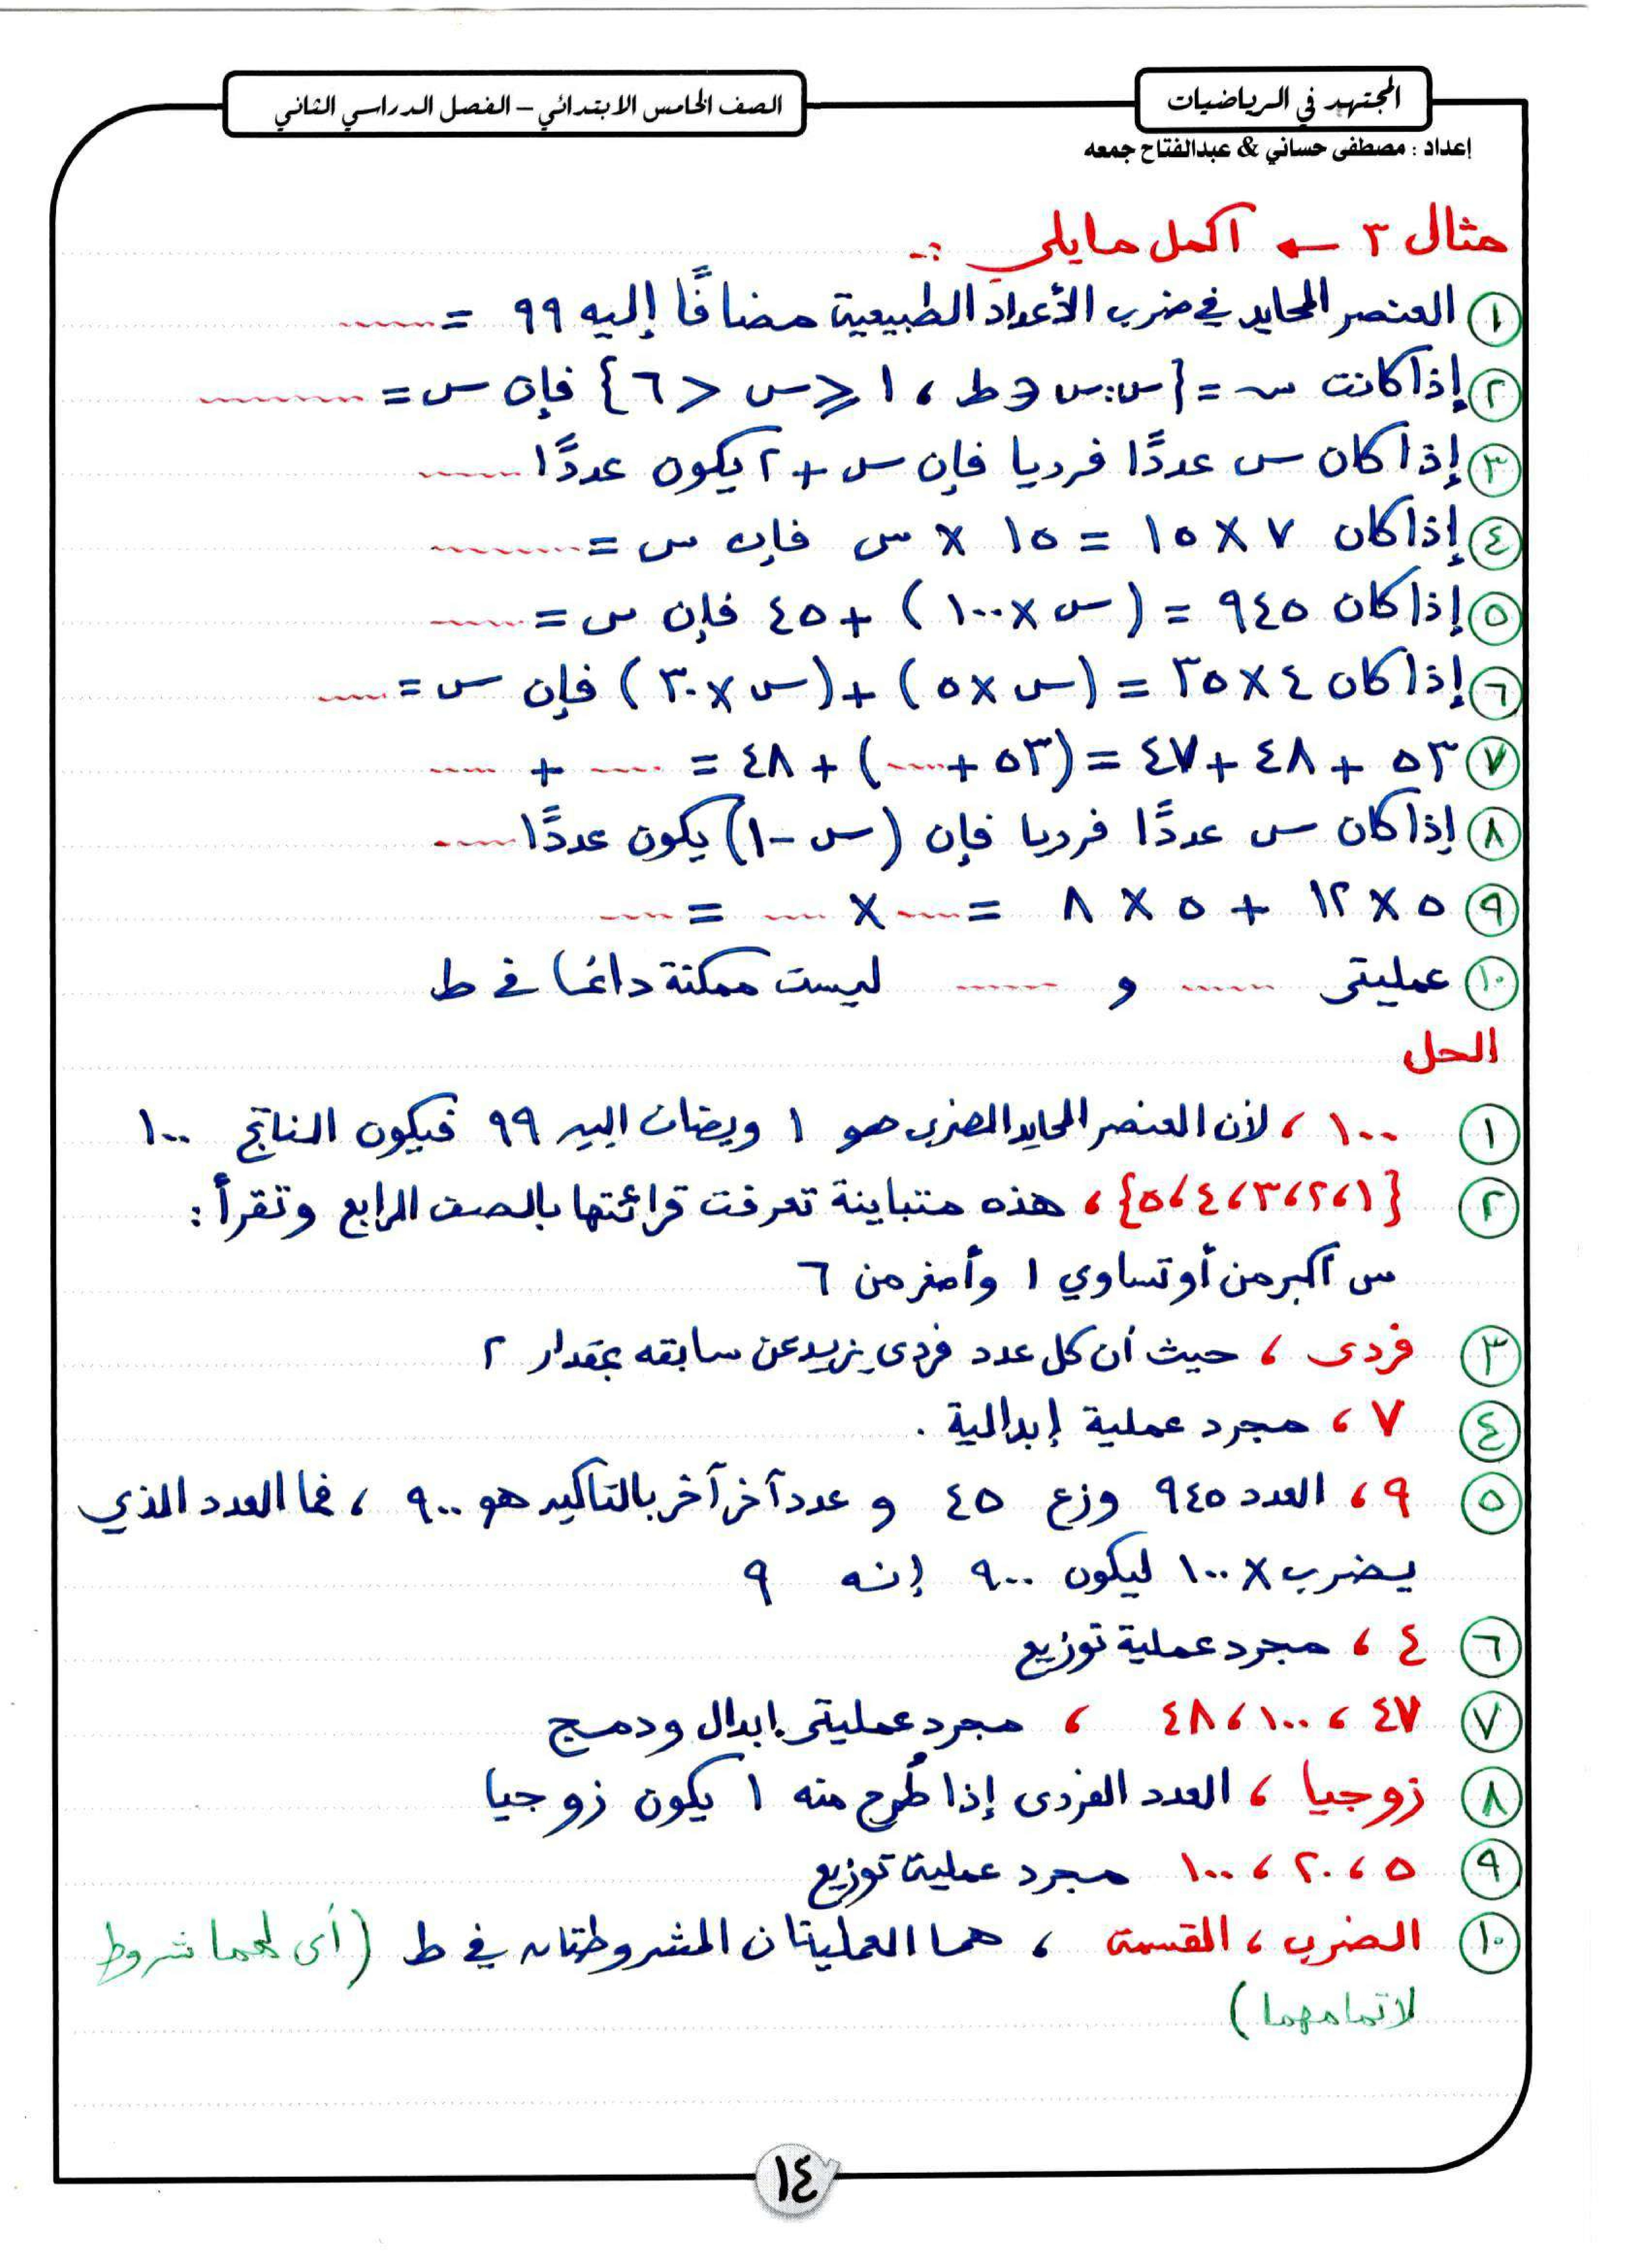 المجتهد في الرياضيات
الصف الخامس الابتدائي – الفصل الدراسي الثاني
إعداد : مصطفى حساني & عبدالفتاح جمعه
مثال ٣ ← أكمل ما يلي :-
١ العنصر المحايد في ضرب الأعداد الطبيعية مضافًا إليه ٩٩ = ......
٢ إذا كانت س = {س : س ∈ ط ، ١ ≤ س < ٦} فإن س = .........
٣ إذا كان س عددًا فرديا فإن س + ٢ يكون عددًا ......
٤ إذا كان ٧ × ١٥ = ١٥ × س فإن س = .........
٥ إذا كان ٩٤٥ = (س × ١٠٠) + ٤٥ فإن س = ......
٦ إذا كان ٤ × ٣٥ = (س × ٥) + (س × ٣٠) فإن س = ....
٧ ٥٣ + ٤٨ + ٤٧ = (٥٣ + ....) + ٤٨ = .... + ....
٨ إذا كان س عددًا فرديا فإن (س - ١) يكون عددًا .....
٩ ٥ × ١٢ + ٥ × ٨ = .... × .... = ....
١٠ عمليتى ...... و ...... ليست ممكنة دائما في ط
الحل
١ ١٠٠ ، لأن العنصر المحايد الضربى هو ١ ويضاف اليه ٩٩ فيكون الناتج ١٠٠
٢ {١،٢،٣،٤،٥} ، هذه متباينة تعرفت قرائتها بالصف الرابع وتقرأ :
س أكبر من أو تساوي ١ وأصغر من ٦
٣ فردى ، حيث أن كل عدد فردى يزيد عن سابقه بمقدار ٢
٤ ٧ ، مجرد عملية إبدالية .
٥ ٩ ، العدد ٩٤٥ وزع ٤٥ و عدد آخر آخر بالتاكيد هو ٩٠٠ ، فما العدد الذي
يضرب × ١٠٠ ليكون ٩٠٠ إنه ٩
٦ ٤ ، مجرد عملية توزيع
٧ ٤٧ ، ١٠٠ ، ٤٨ ، مجرد عمليتى ابدال ودمج
٨ زوجيا ، العدد الفردى إذا طُرح منه ١ يكون زوجيا
٩ ٥ ، ٢٠ ، ١٠٠ مجرد عملية توزيع
١٠ الضرب ، القسمة ، هما العمليتان المشروطتان في ط (أى لهما شروط
لاتمامهما)
١٤